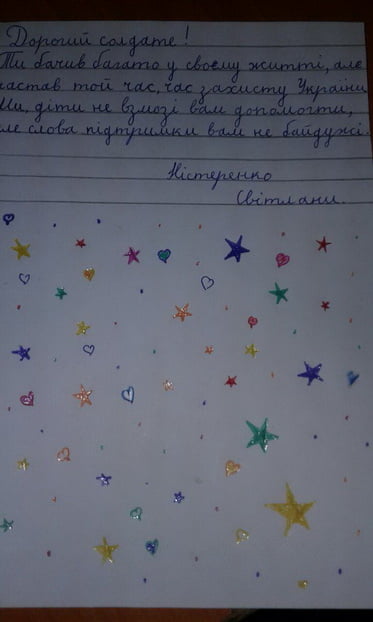 Дорогий солдате!
Ти бачив багато у своєму житті, але
настав той час, час захисту України
Ми, діти не взмозі вам допомогти,
але слова підтримки вам не байдужі.
Ністеренко
Світлани.